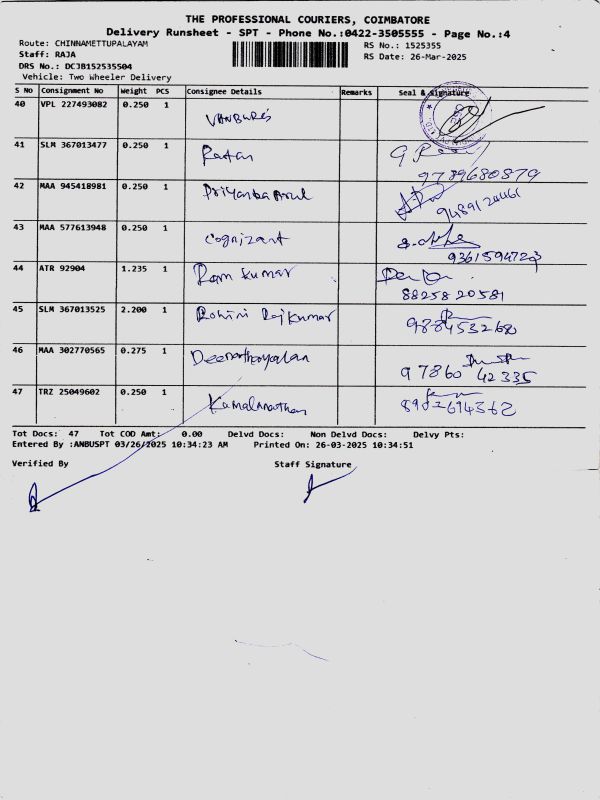 THE PROFESSIONAL COURIERS, COIMBATORE
Delivery Runsheet - SPT - Phone No.:0422-3505555 - Page No.:4
Route: CHINNAMETTUPALAYAM RS No.: 1525355
Staff: RAJA RS Date: 26-Mar-2025
DRS No.: DCJB152535504
Vehicle: Two Wheeler Delivery
S No Consignment No Weight PCS Consignee Details Remarks Seal & Signature
40 VPL 227493082 0.250 1
41 SLM 367013477 0.250 1 Ratan
9789680879
42 MAA 945418981 0.250 1 Priyanka Arul
43 MAA 577613948 0.250 1 Cognizant
9361594723
44 ATR 92904 1.235 1 Ram Kumar
88258 20581
45 SLM 367013525 2.200 1 Rohini Rajkumar
9884532680
46 MAA 302770565 0.275 1 Deenathayalan
97860 42335
47 TRZ 25049602 0.250 1 Kamalanathan
8902694362
Tot Docs: 47 Tot COD Amt: 0.00 Delvd Docs: Non Delvd Docs: Delvy Pts:
Entered By :ANBUSPT 03/26/2025 10:34:23 AM Printed On: 26-03-2025 10:34:51
Verified By Staff Signature